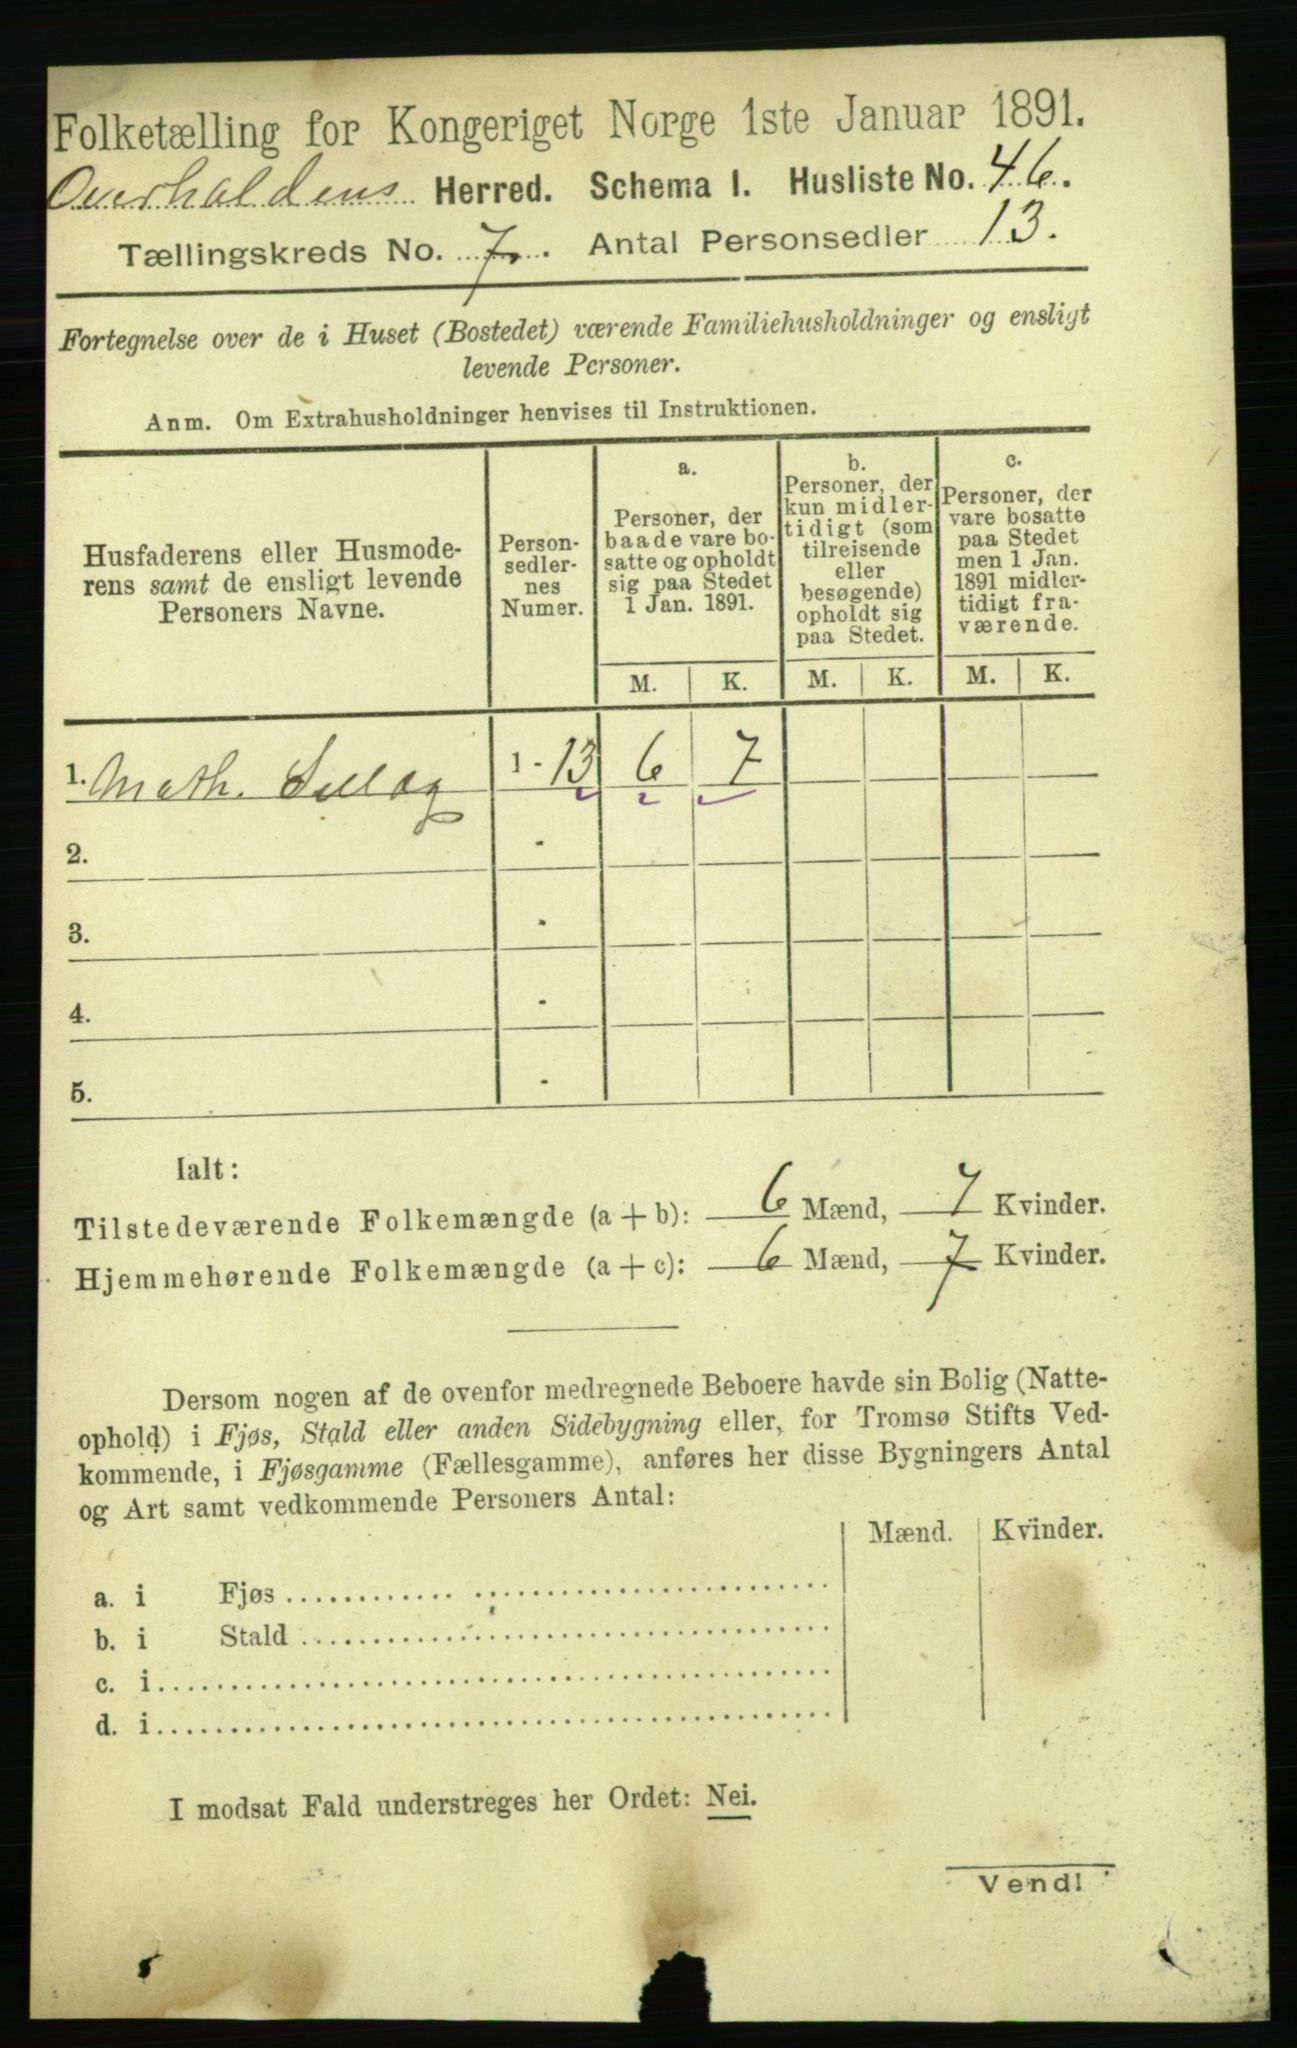 Folketælling for Kongeriget Norge 1ste Januar 1891.
Overhaldens Herred. Schema I. Husliste No. 46.
Tællingskreds No. 7. Antal Personsedler 13.
Fortegnelse over de i Huset (Bostedet) værende Familiehusholdninger og ensligt
levende Personer.
Anm. Om Extrahusholdninger henvises til Instruktionen.
Husfaderens eller Husmode-
rens samt de ensligt levende
Personers Navne.
Person-
sedler-
nes
Numer.
a.
Personer, der
baade vare bo-
satte og opholdt
sig paa Stedet
1 Jan. 1891.
b.
Personer, der
kun midler-
tidigt (som
tilreisende
eller
besøgende)
opholdt sig
paa Stedet.
c.
Personer, der
vare bosatte
paa Stedet
men 1 Jan.
1891 midler-
tidigt fra-
værende.
M. K. M. K. M. K.
1. Math. 1 - 13 6 7
2. -
3. -
4. -
5. -
Ialt:
Tilstedeværende Folkemængde (a + b): 6 Mænd, 7 Kvinder.
Hjemmehørende Folkemængde (a + c): 6 Mænd, 7 Kvinder.
Dersom nogen af de ovenfor medregnede Beboere havde sin Bolig (Natte-
ophold) i Fjøs, Stald eller anden Sidebygning eller, for Tromsø Stifts Ved-
kommende, i Fjøsgamme (Fællesgamme), anføres her disse Bygningers Antal
og Art samt vedkommende Personers Antal:
Mænd. Kvinder.
a. i Fjøs
b. i Stald
c. i
d. i
I modsat Fald understreges her Ordet: Nei.
Vend!